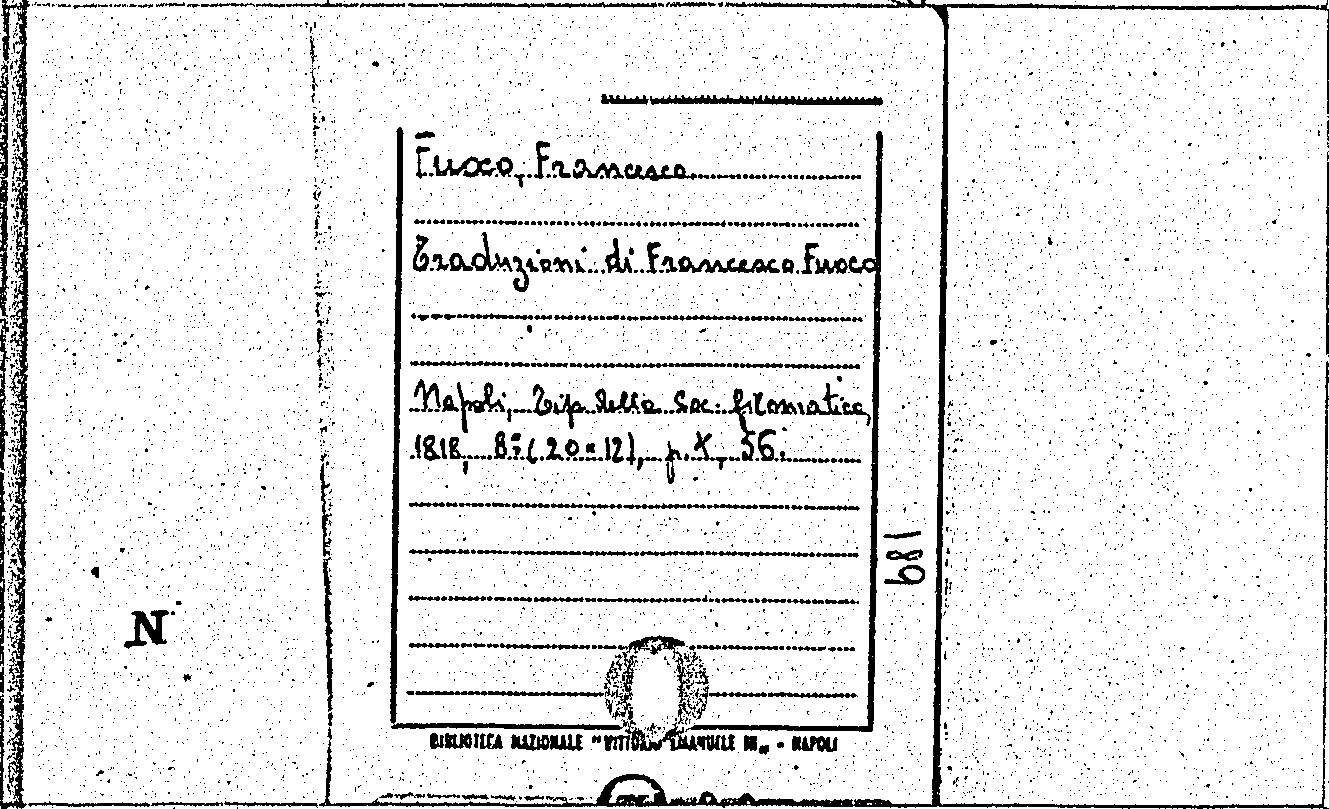 Fuoco, Francesco
Traduzioni di Francesco Fuoco
Napoli, Tip. della Soc. filomatica,
1818, 8º (20×12), p. X, 56.
189
N
BIBLIOTECA NAZIONALE "VITTORIO EMANUELE III" - NAPOLI